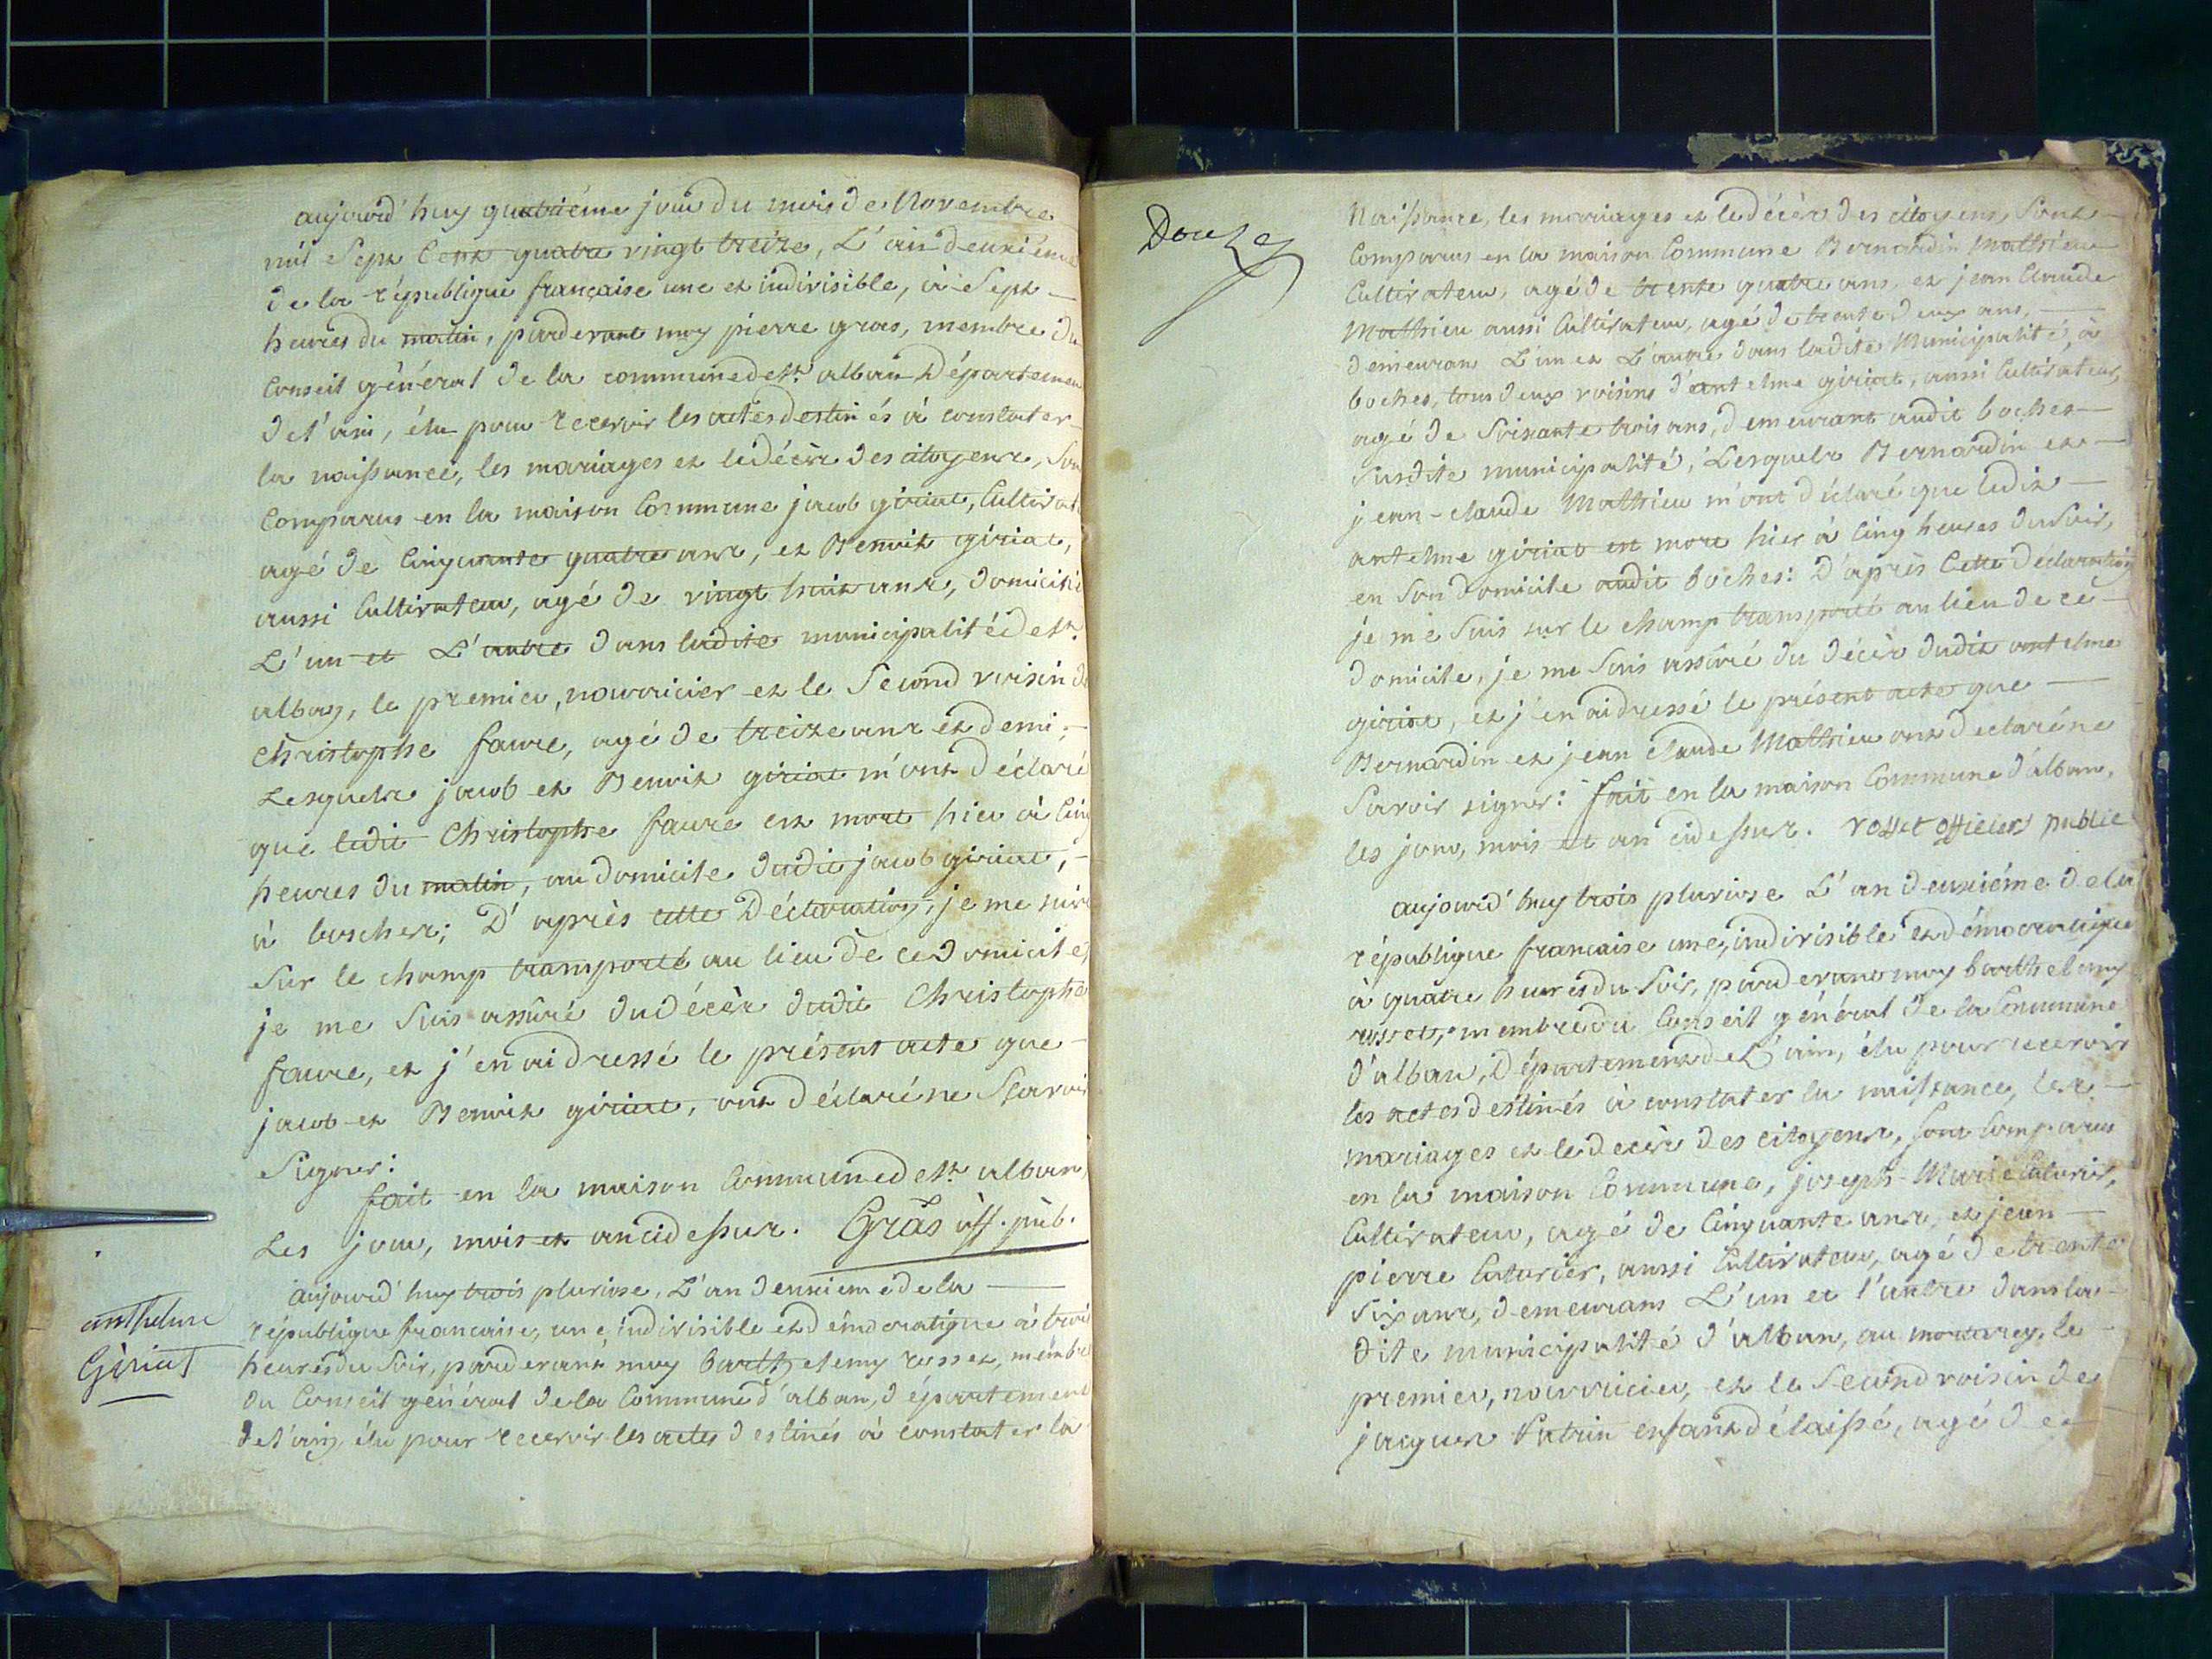 aujourd'huy quatriéme jour du mois de Novembre
mil Sept Cent quatre vingt treize, L'an deuxiéme
de la république française une et indivisible, à Sept
heures du matin, pardevant moy pierre gras, membre du
Conseil général de la commune de st. alban Départemen
de l'ain, élu pour recevoir les actes destinés à constater
la naissance, les mariages et le décès des citoyens, son
Comparus en la maison Commune jacob giriat, Cultivat
agé de Cinquante quatre ans, et Benoit giriat,
aussi Cultivateur, agé de vingt huit ans, domicilié
L'un et L'autre dans ladite municipalité de st.
alban, le premier, nourricier et le Second voisin de
Christophe faure, agé de treize ans et demi;
Lesquels jacob et Benoit giriat m'ont déclaré
que ledit Christophe faure est mort hier à Cinq
heures du matin, au domicile dudit jacob giriat,
à boches; D'après cette Déclaration, je me suis
Sur le champ transporté au lieu de ce Domicile,
je me Suis assuré du Décès dudit Christophe
faure, et j'en ai dressé le présent acte que
jacob et Benoit giriat, ont Déclaré ne Scavoir
Signer:
fait en la maison Commune de st. alban,
Les jour, mois et an cidessus. Gras off. pub.
anthelme
Giriat
aujourd'huy trois pluviose, L'an deuxieme de la
république francaise, une, indivisible et démocratique à trois
heures du Soir, pardevant moy barthelemy rosset, membre
du Conseil général de la Commune d'alban, département
de l'ain, élu pour recevoir les actes destinés à constater la
Douze
Naissance, les mariages et le décès des citoyens, Sont
Comparus en la maison Commune Bernardin Mathieu
Cultivateur, agé de trente quatre ans, et jean Claude
Mathieu aussi Cultivateur, agé de trente deux ans,
demeurans L'un et L'autre dans ladite Municipalité, à
boches, tous deux voisins d'antelme giriat, aussi Cultivateur,
agé de Soixante trois ans, demeurant audit boches
Susdite municipalité, Lesquels Bernardin et
jean-claude Mathieu m'ont déclaré que Ledit
antelme giriat est mort hier à Cinq heures du Soir,
en Son domicile audit boches: D'après Cette déclaration
je me Suis sur le champ transporté au lieu de ce
domicile, je me Suis assûré du décès dudit antelme
giriat, et j'en ai dressé le présent acte que
Bernardin et jean claude Mathieu ont declaré ne
Savoir signer: fait en la maison Commune d'alban,
les jour, mois et an cidessus. rosset officier public
aujourd'huy trois pluviose L'an deuxiéme de la
république francaise une, indivisible et démocratique
à quatre heures du Soir, pardevant moy barthelemy
rosset, membre du Conseil général de la Commune
d'alban, Département de L'ain, élu pour recevoir
les actes destinés à constater la naissance, les
mariages et le decès des citoyens, sont Comparus
en la maison Commune, joseph-Marie Caturier,
Cultivateur, agé de Cinquante ans, et jean
pierre Caturier, aussi Cultivateur, agé de trente
Six ans, demeurans L'un et l'autre dans la
dite municipalité d'alban, au mortarey, le
premier, nourricier, et le Second voisin de
jacques Patrin enfant délaissé, agé de